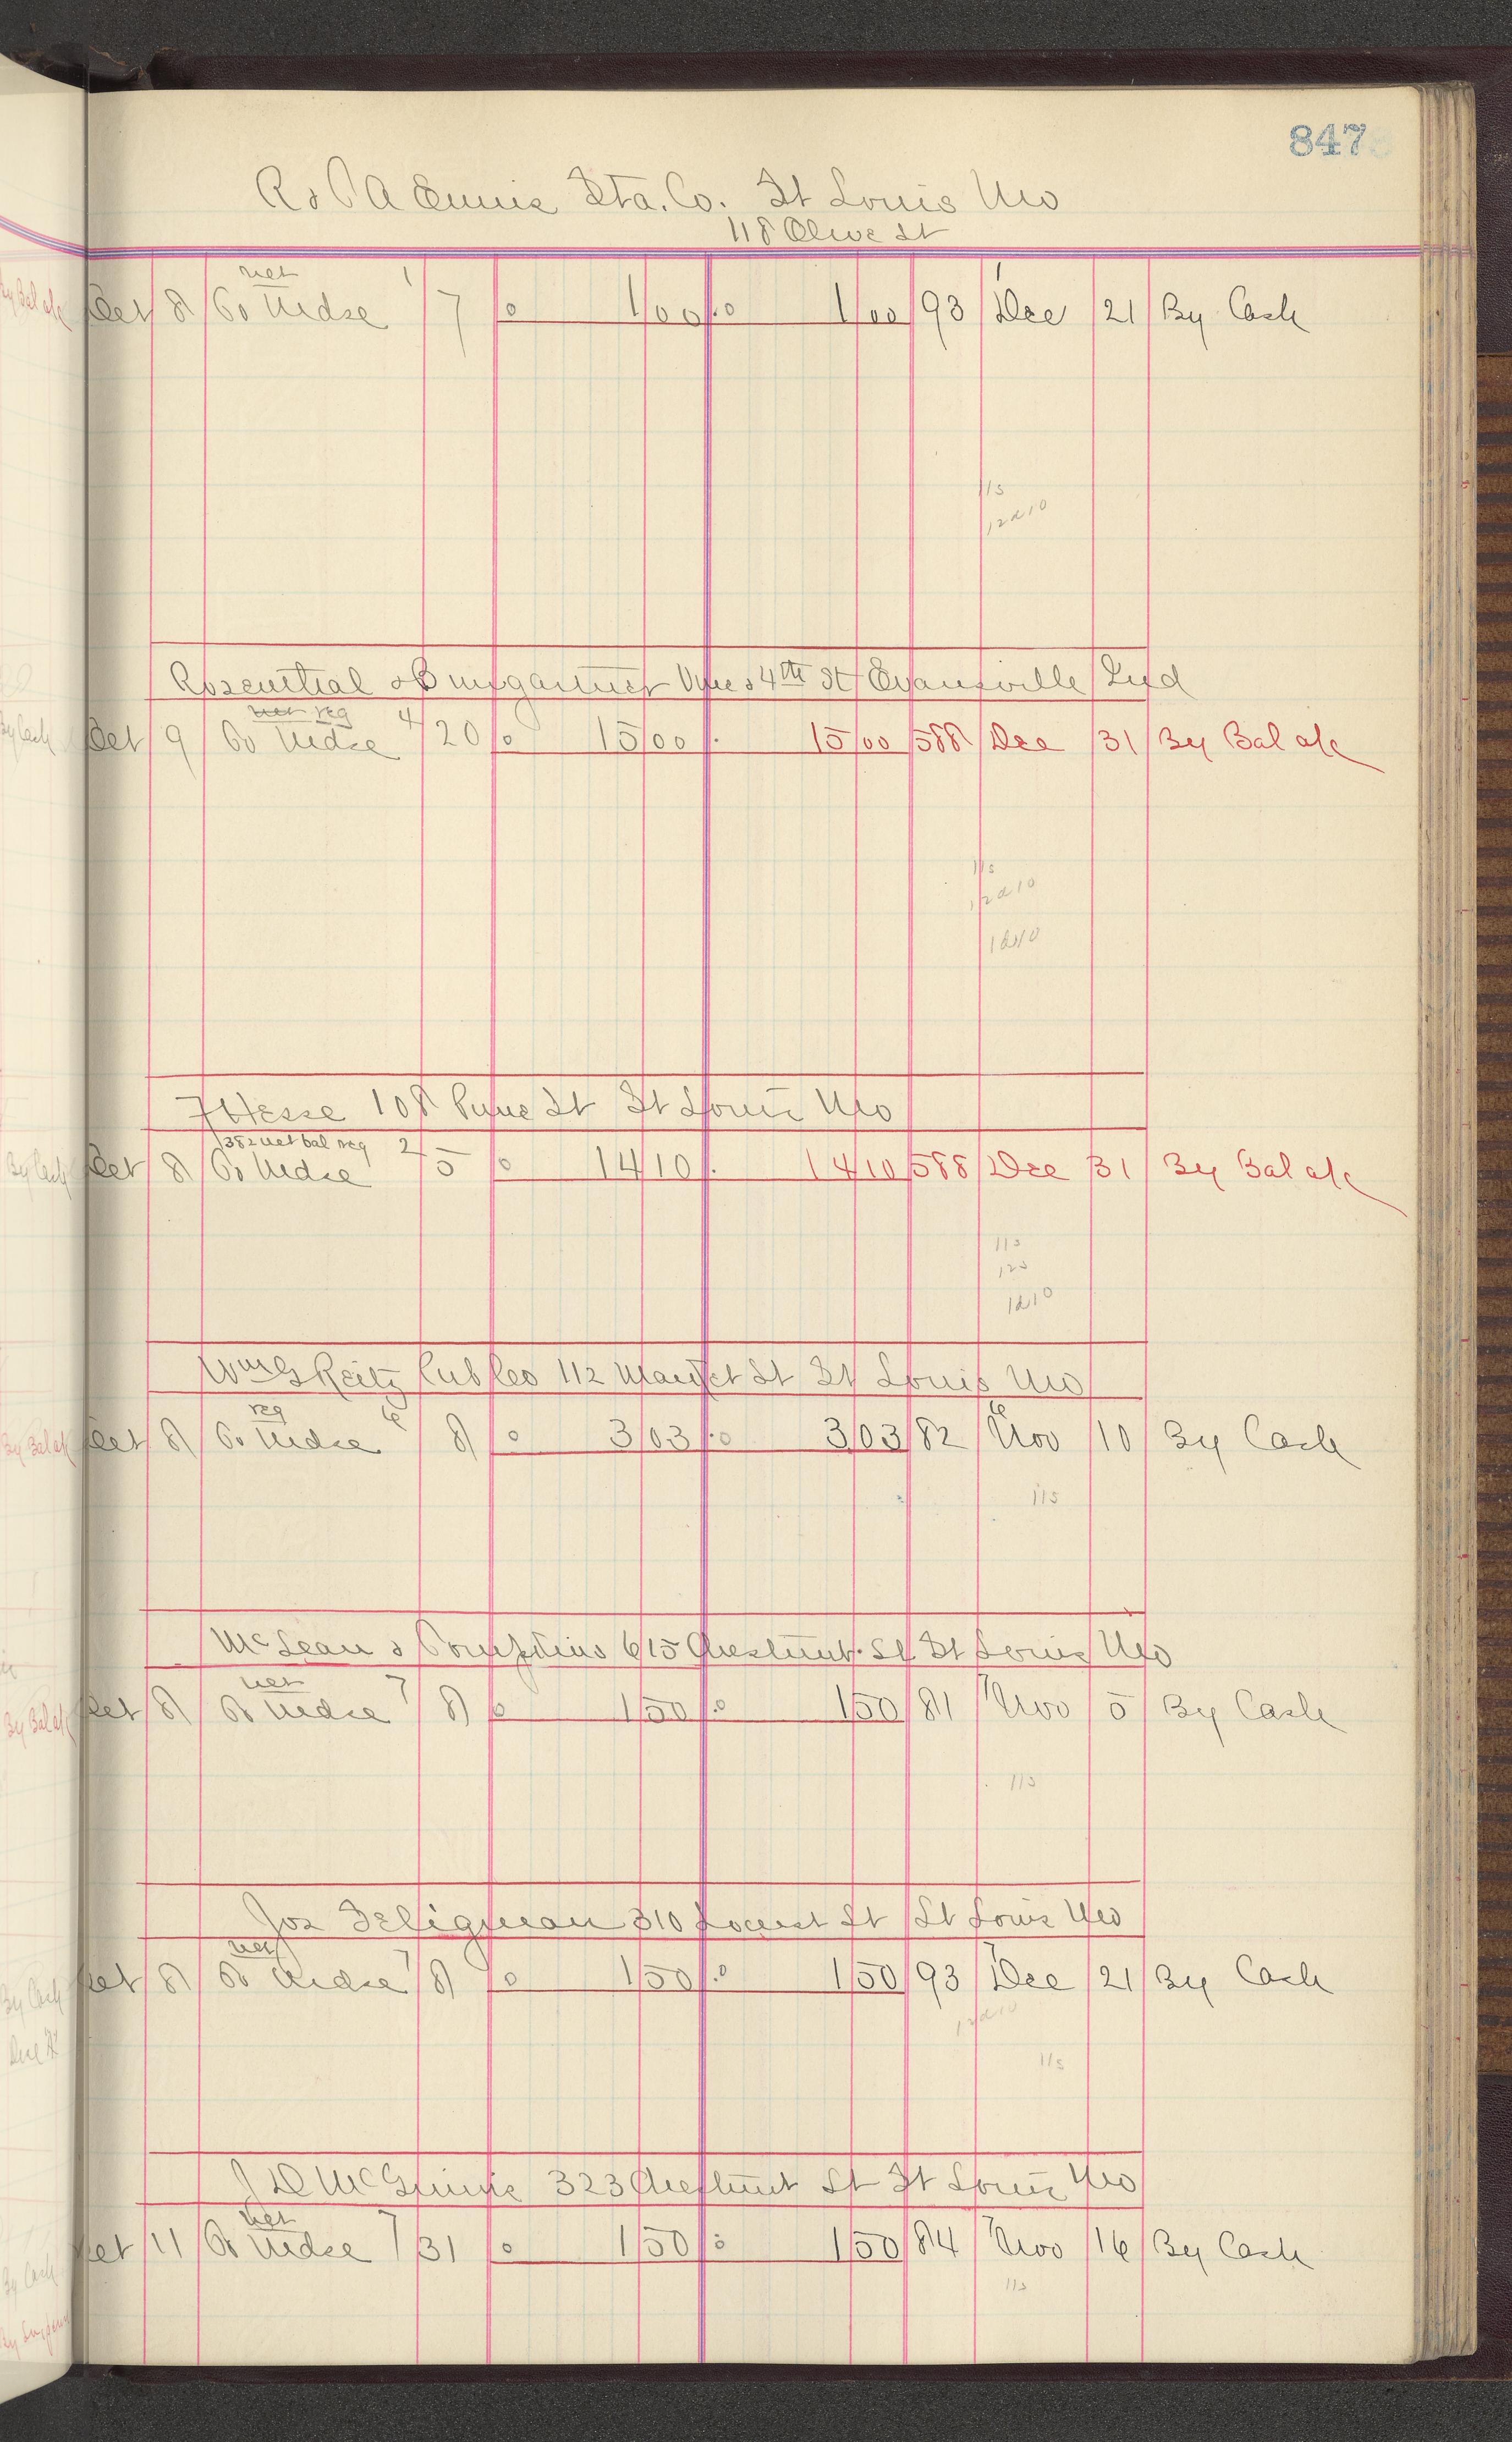 847
R & P A Ennis Sta. Co. St Louis Mo
118 Olive St
net 1
Oct 8 To Mdse 7 1 00 1 00 93 Dec 21 By Cash
11s
12d10
Rosenthal & Bumgartner Vine & 4th St Evansville Ind
net reg 4
Oct 9 To Mdse 20 15 00 15 00 588 Dec 31 By Bal a/c
11s
12d10
1d10
F Hesse 108 Pine St St Louis Mo
382 net bal reg 2
Oct 8 To Mdse 5 14 10 14 10 588 Dec 31 By Bal a/c
11s
12s
1d10
Wm G Reitz Pub Co 112 Market St St Louis Mo
reg 6 6
Oct 8 To Mdse 8 3 03 3 03 82 Nov 10 By Cash
11s
McLean & Tompkins 615 Chestnut St St Louis Mo
net 7 7
Oct 8 To Mdse 8 1 50 1 50 81 Nov 5 By Cash
11s
Jos Seligman 310 Locust St St Louis Mo
net 7 7
Oct 8 To Mdse 8 1 50 1 50 93 Dec 21 By Cash
12d10
11s
J D McGinnis 323 Chestnut St St Louis Mo
net 7 7
Oct 11 To Mdse 31 1 50 1 50 84 Nov 16 By Cash
11s